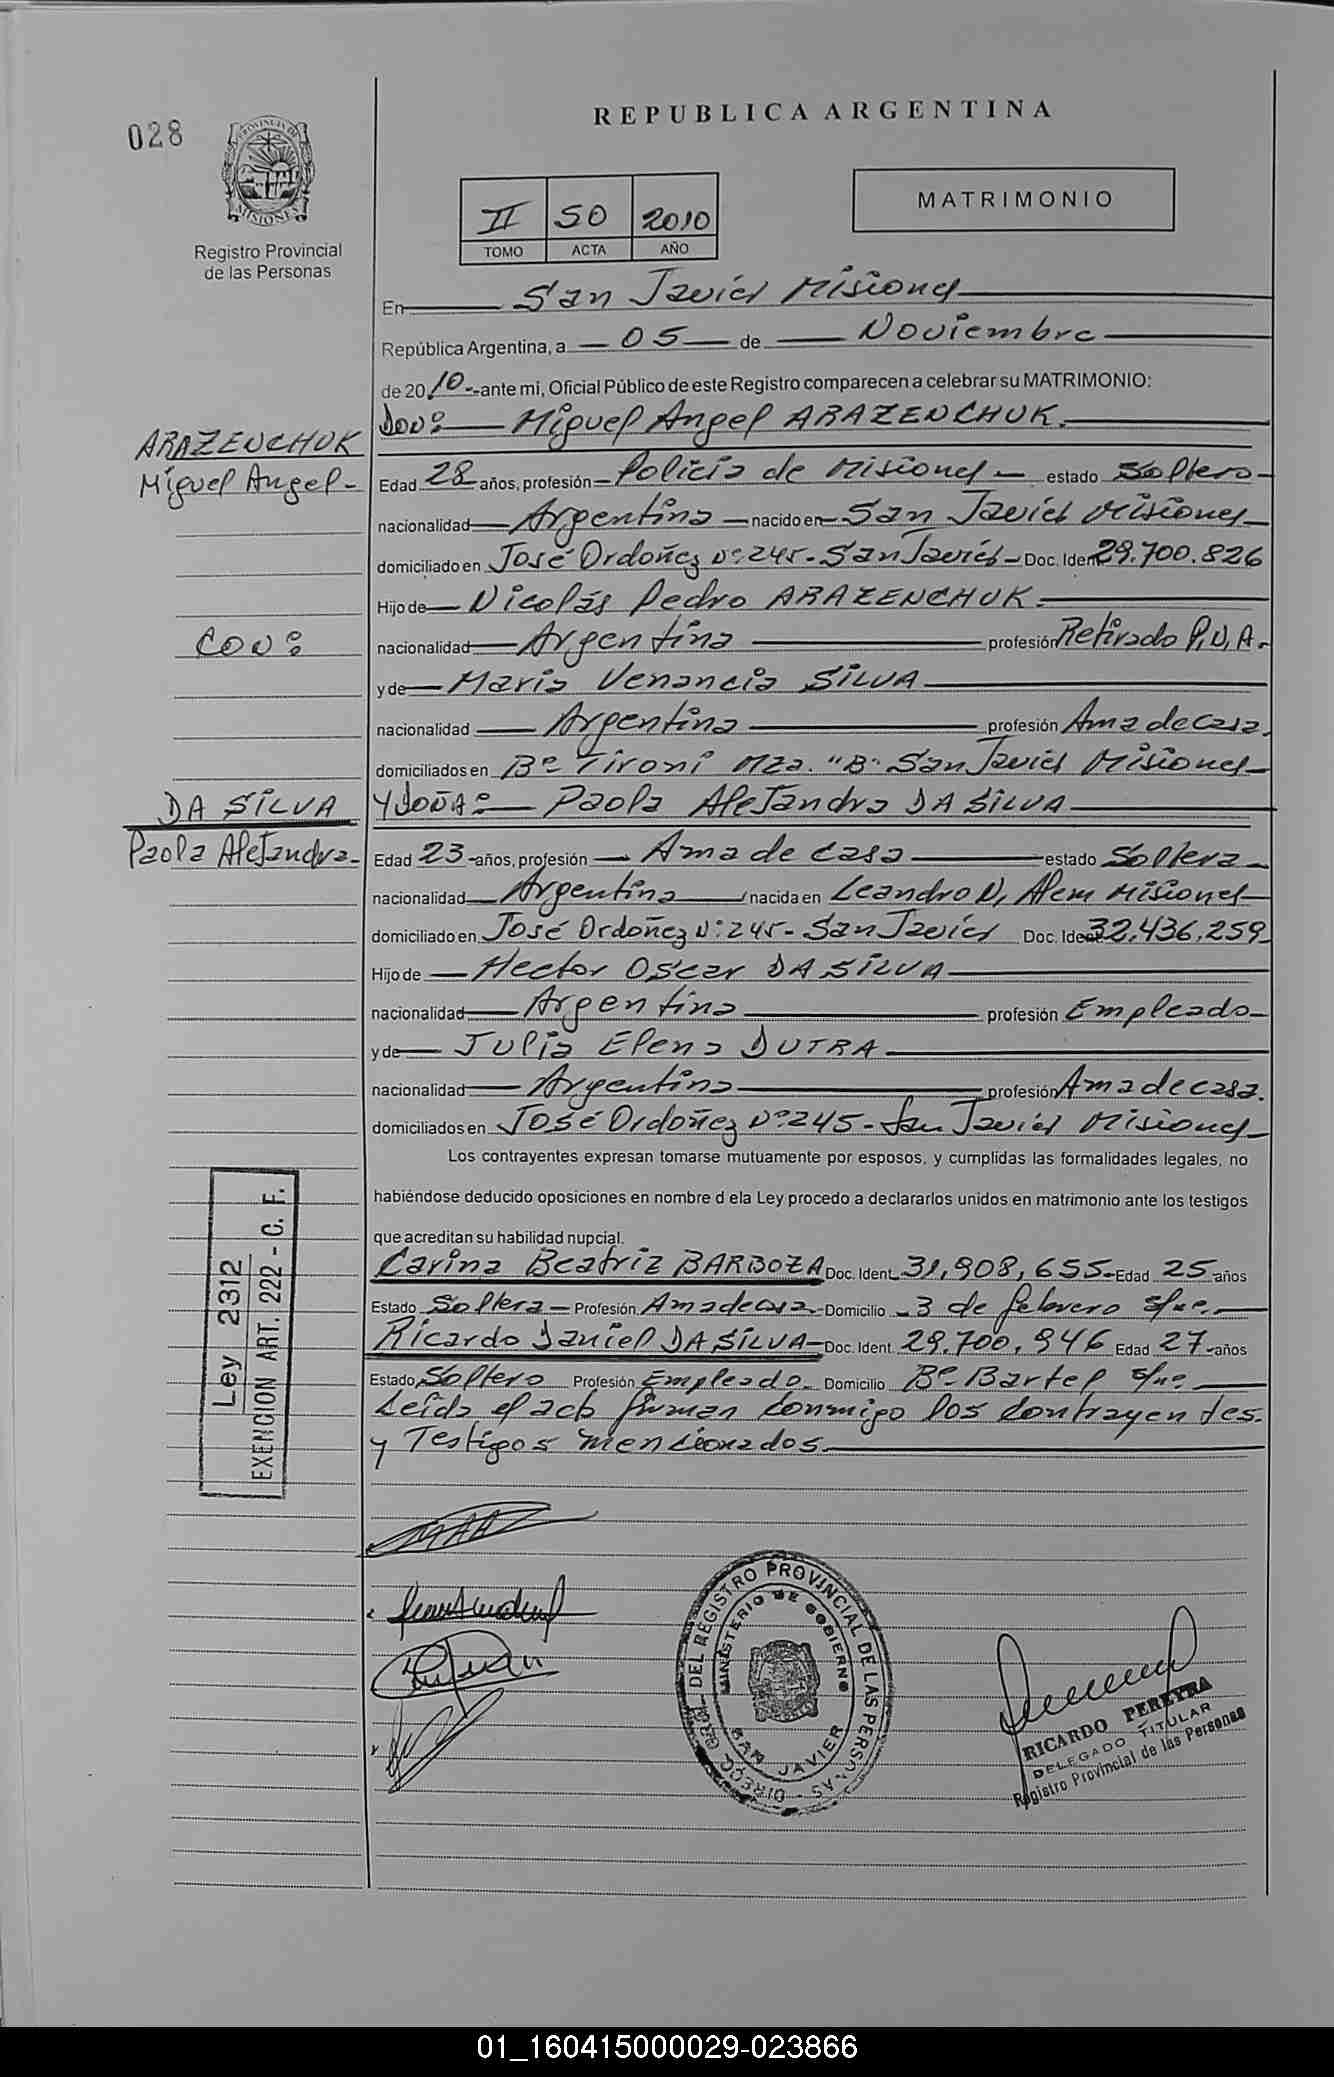 028
PROVINCIA DE
MISIONES
Registro Provincial
de las Personas
REPUBLICA ARGENTINA
II 50 2010
TOMO ACTA AÑO
MATRIMONIO
En San Javier Misiones
República Argentina, a 05 de Noviembre
de 2010 ante mi, Oficial Público de este Registro comparecen a celebrar su MATRIMONIO:
Don: Miguel Angel ARAZENCHUK.
ARAZENCHUK
Miguel Angel
Edad 28 años, profesión Policía de Misiones estado Soltero
nacionalidad Argentina nacido en San Javier Misiones
domiciliado en José Ordoñez Nº 245 - San Javier Doc. Ident. 29.700.826
Hijo de Nicolás Pedro ARAZENCHUK.
CON:
nacionalidad Argentina profesión Retirado P.N.A.
y de Maria Venancia SILVA
nacionalidad Argentina profesión Ama de casa.
domiciliados en Bº Tironi Mza. "B" San Javier Misiones
DA SILVA
Y DOÑA: Paola Alejandra DA SILVA
Paola Alejandra
Edad 23 años, profesión Ama de casa estado Soltera
nacionalidad Argentina nacida en Leandro N. Alem Misiones
domiciliado en José Ordoñez Nº 245 - San Javier Doc. Ident. 32.436.259
Hijo de Hector Oscar DA SILVA
nacionalidad Argentina profesión Empleado
y de Julia Elena DUTRA
nacionalidad Argentina profesión Ama de casa.
domiciliados en José Ordoñez Nº 245 - San Javier Misiones
Los contrayentes expresan tomarse mutuamente por esposos, y cumplidas las formalidades legales, no
habiéndose deducido oposiciones en nombre d ela Ley procedo a declararlos unidos en matrimonio ante los testigos
que acreditan su habilidad nupcial.
Carina Beatriz BARBOZA Doc. Ident. 31.908.655 Edad 25 años
Estado Soltera Profesión Ama de casa Domicilio 3 de febrero s/nº
Ricardo Daniel DA SILVA Doc. Ident. 29.700.946 Edad 27 años
Estado Soltero Profesión Empleado Domicilio Bº Bartel s/nº
Leída el acta firman conmigo los contrayentes
y Testigos mencionados
Ley 2312
EXENCION ART. 222 - C. F.
DIRECC. GRAL. DEL REGISTRO PROVINCIAL DE LAS PERSONAS
MINISTERIO DE GOBIERNO
SAN JAVIER
RICARDO PEREYRA
DELEGADO TITULAR
Registro Provincial de las Personas
01_160415000029-023866